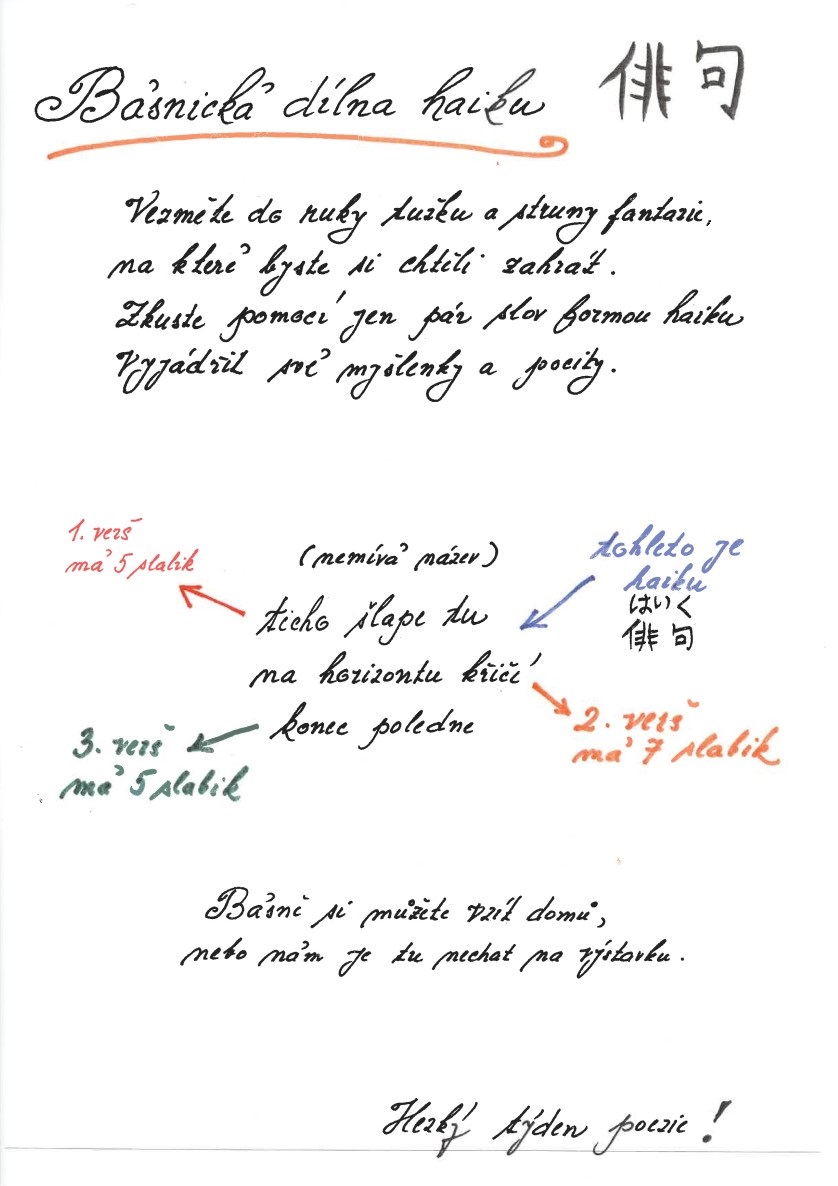 Básnická dílna haiku 俳句
Vezměte do ruky tužku a struny fantazie,
na které byste si chtěli zahrát.
Zkuste pomocí jen pár slov formou haiku
vyjádřit své myšlenky a pocity.
1. verš
má 5 slabik
(nemívá název)
tohleto je
haiku
はいく
俳句
ticho šlape tu
na horizontu křičí
konec poledne
2. verš
má 7 slabik
3. verš
má 5 slabik
Básně si můžete vzít domů,
nebo nám je tu nechat na výstavku.
Hezký týden poezie!